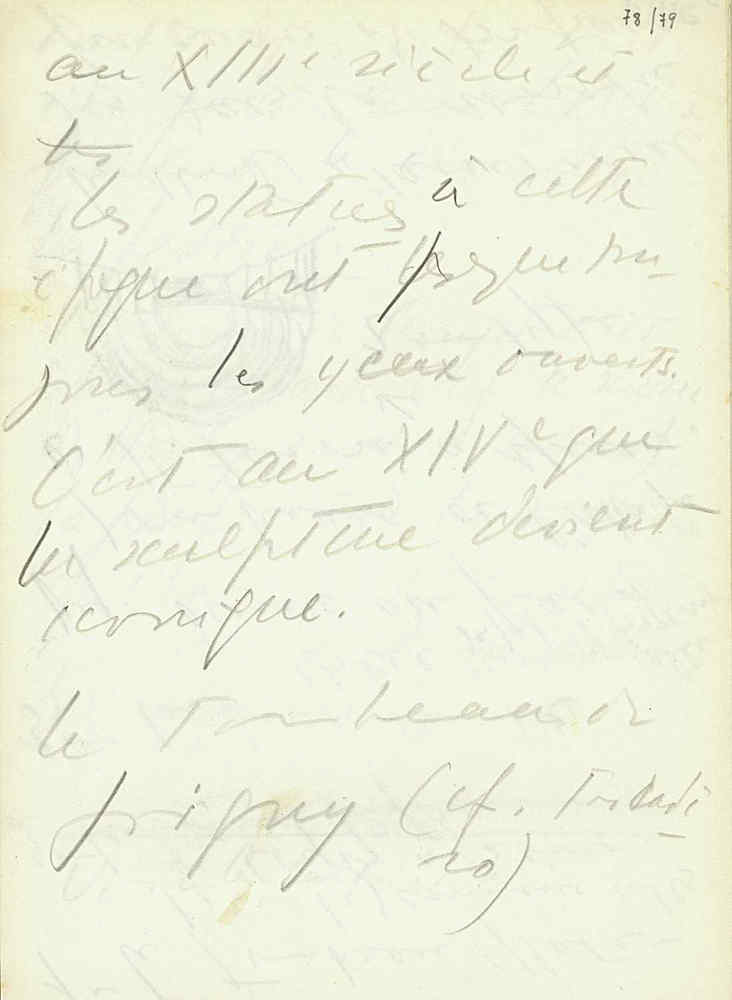 78/79
au XIIIe siècle et
les
les statues à cette
époque ont presque tou-
jours les yeux ouverts.
C'est au XIVe que
la sculpture devient
iconique.
le Tombeau de
(cf. Trocadé-
ro)